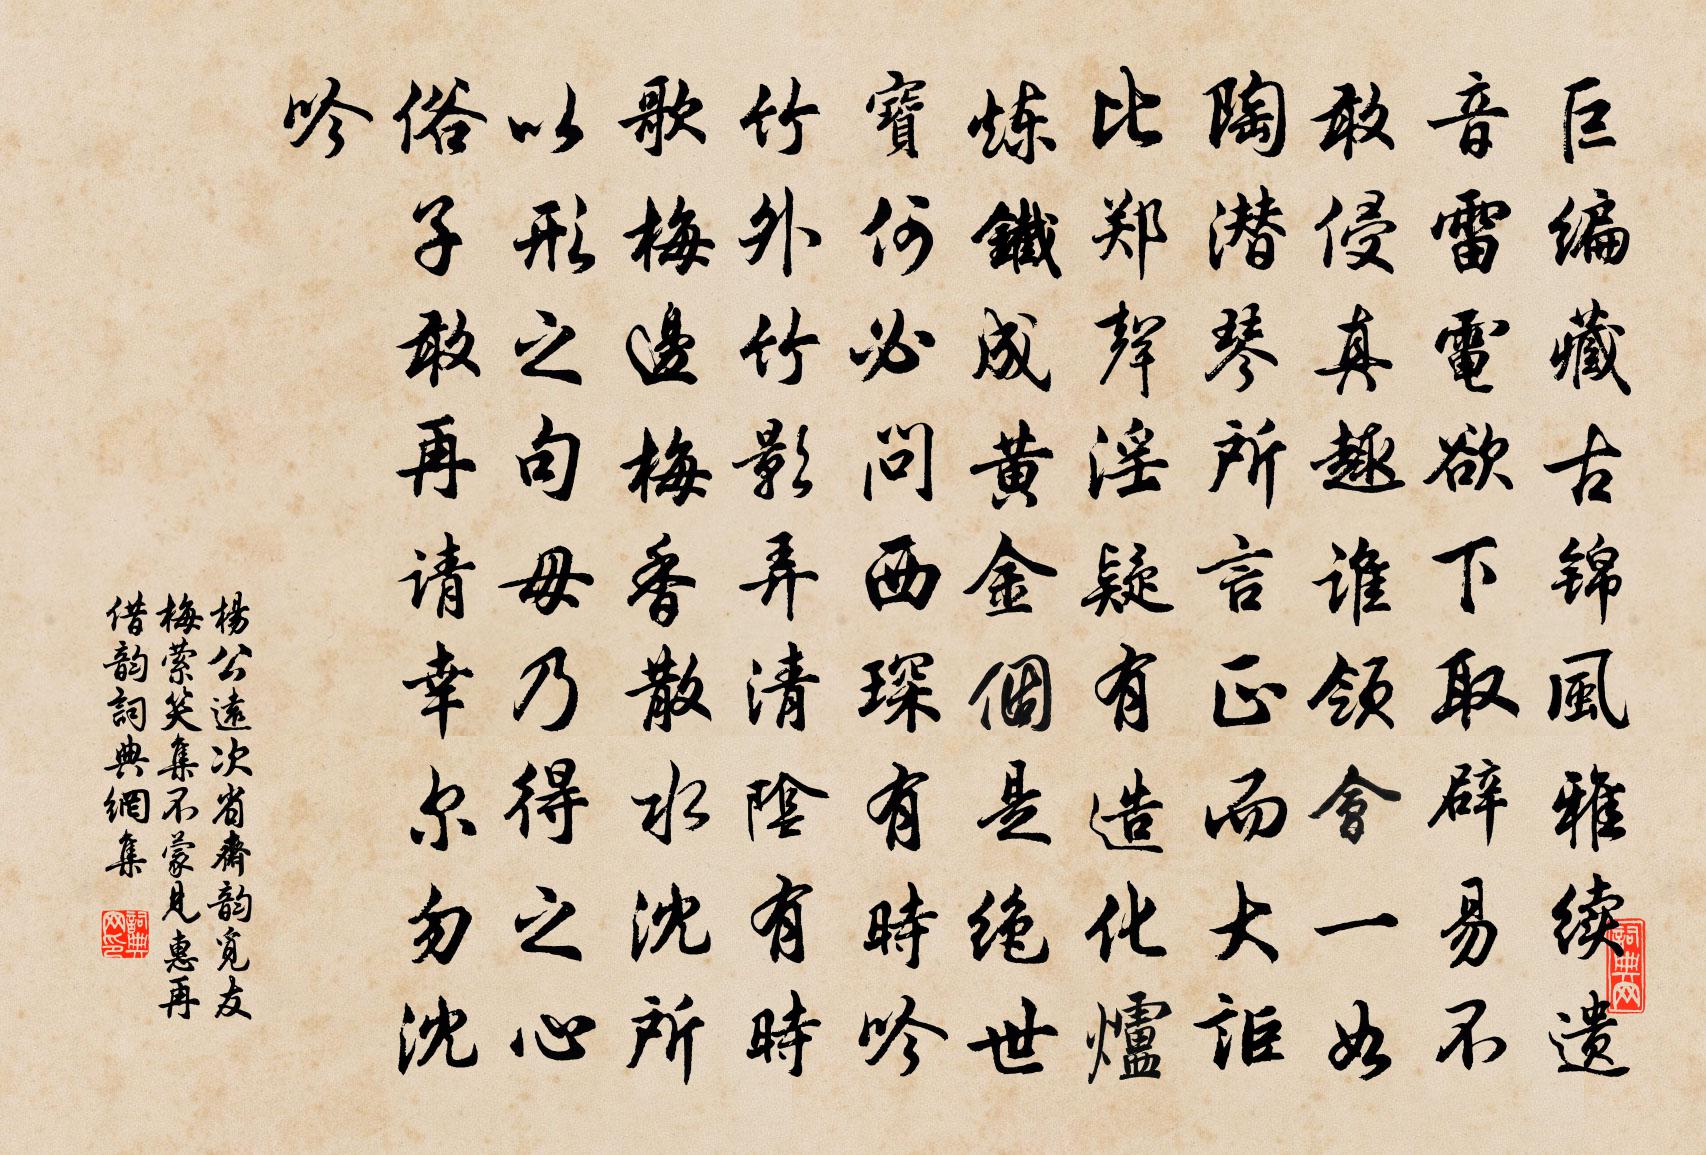 巨编藏古锦風雅续遗
音雷電欲下取辟易不
敢侵真趣谁领會一如
陶潜琴所言正而大詎
比郑聲淫疑有造化爐
炼鐵成黄金個是绝世
寶何必问西琛有時吟
竹外竹影弄清陰有時
歌梅邊梅香散水沈所
以形之句毋乃得之心
俗子敢再请幸尔勿沈
吟
楊公遠次省齋韵覓友
梅萦笑集不蒙見惠再
借韵詞典網集
詞典网
詞典网印